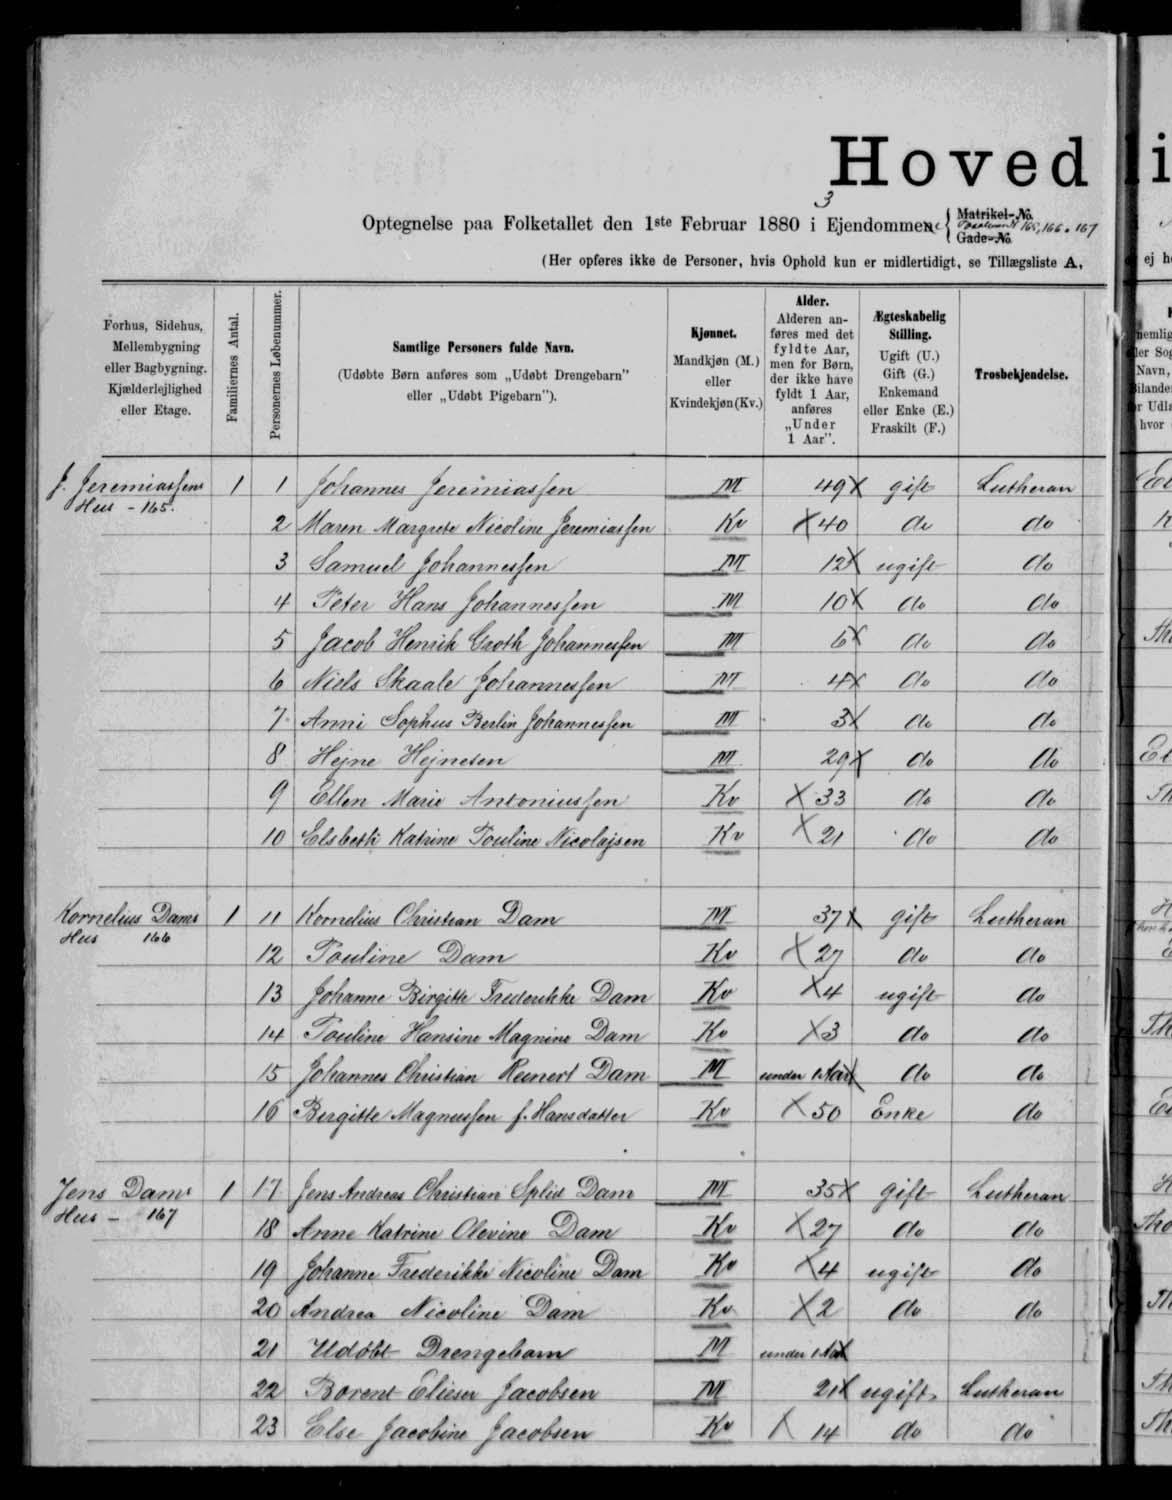 Hoved
3
Optegnelse paa Folketallet den 1ste Februar 1880 i Ejendommene { Matrikel-No. 165, 166 . 167 Gade-No.
(Her opføres ikke de Personer, hvis Ophold kun er midlertidigt, se Tillægsliste A,
Forhus, Sidehus, Mellembygning eller Bagbygning. Kjælderlejlighed eller Etage.
Familiernes Antal.
Personernes Løbenummer.
Samtlige Personers fulde Navn.
(Udøbte Børn anføres som „Udøbt Drengebarn" eller „Udøbt Pigebarn").
Kjønnet.
Mandkjøn (M.) eller Kvindekjøn (Kv.)
Alder.
Alderen anføres med det fyldte Aar, men for Børn, der ikke have fyldt 1 Aar, anføres „Under 1 Aar".
Ægteskabelig Stilling.
Ugift (U.) Gift (G.) Enkemand eller Enke (E.) Fraskilt (F.)
Trosbekjendelse.
J. Jeremiassens 1 1 Johannes Jeremiassen M 49 x gift Lutheran
Hus - 165.
2 Maren Margrete Nicoline Jeremiassen Kv x 40 do do
3 Samuel Johannessen M 12 x ugift do
4 Peter Hans Johannessen M 10 x do do
5 Jacob Henrik Groth Johannessen M 6 x do do
6 Niels Skaale Johannessen M 4 x do do
7 Anni Sophus Berlin Johannessen M 3 x do do
8 Hejne Hejnesen M 29 x do do
9 Ellen Marie Antoniussen Kv x 33 do do
10 Elsbeth Katrine Pouline Nicolajsen Kv x 21 do do
Kornelius Dams 1 11 Kornelius Christian Dam M 37 x gift Lutheran
Hus 166
12 Pouline Dam Kv x 27 do do
13 Johanne Birgitte Frederikke Dam Kv x 4 ugift do
14 Pouline Hansine Magnine Dam Kv x 3 do do
15 Johannes Christian Reinert Dam M under 1 Aar x do do
16 Birgitte Magnussen f. Hansdatter Kv x 50 Enke do
Jens Dams 1 17 Jens Andreas Christian Splid Dam M 35 x gift Lutheran
Hus - 167
18 Anne Katrine Olevine Dam Kv x 27 do do
19 Johanne Frederikke Nicoline Dam Kv x 4 ugift do
20 Andrea Nicoline Dam Kv x 2 do do
21 Udøbt Drengebarn M under 1 Aar x
22 Berent Elieser Jacobsen M 21 x ugift Lutheran
23 Else Jacobine Jacobsen Kv x 14 do do